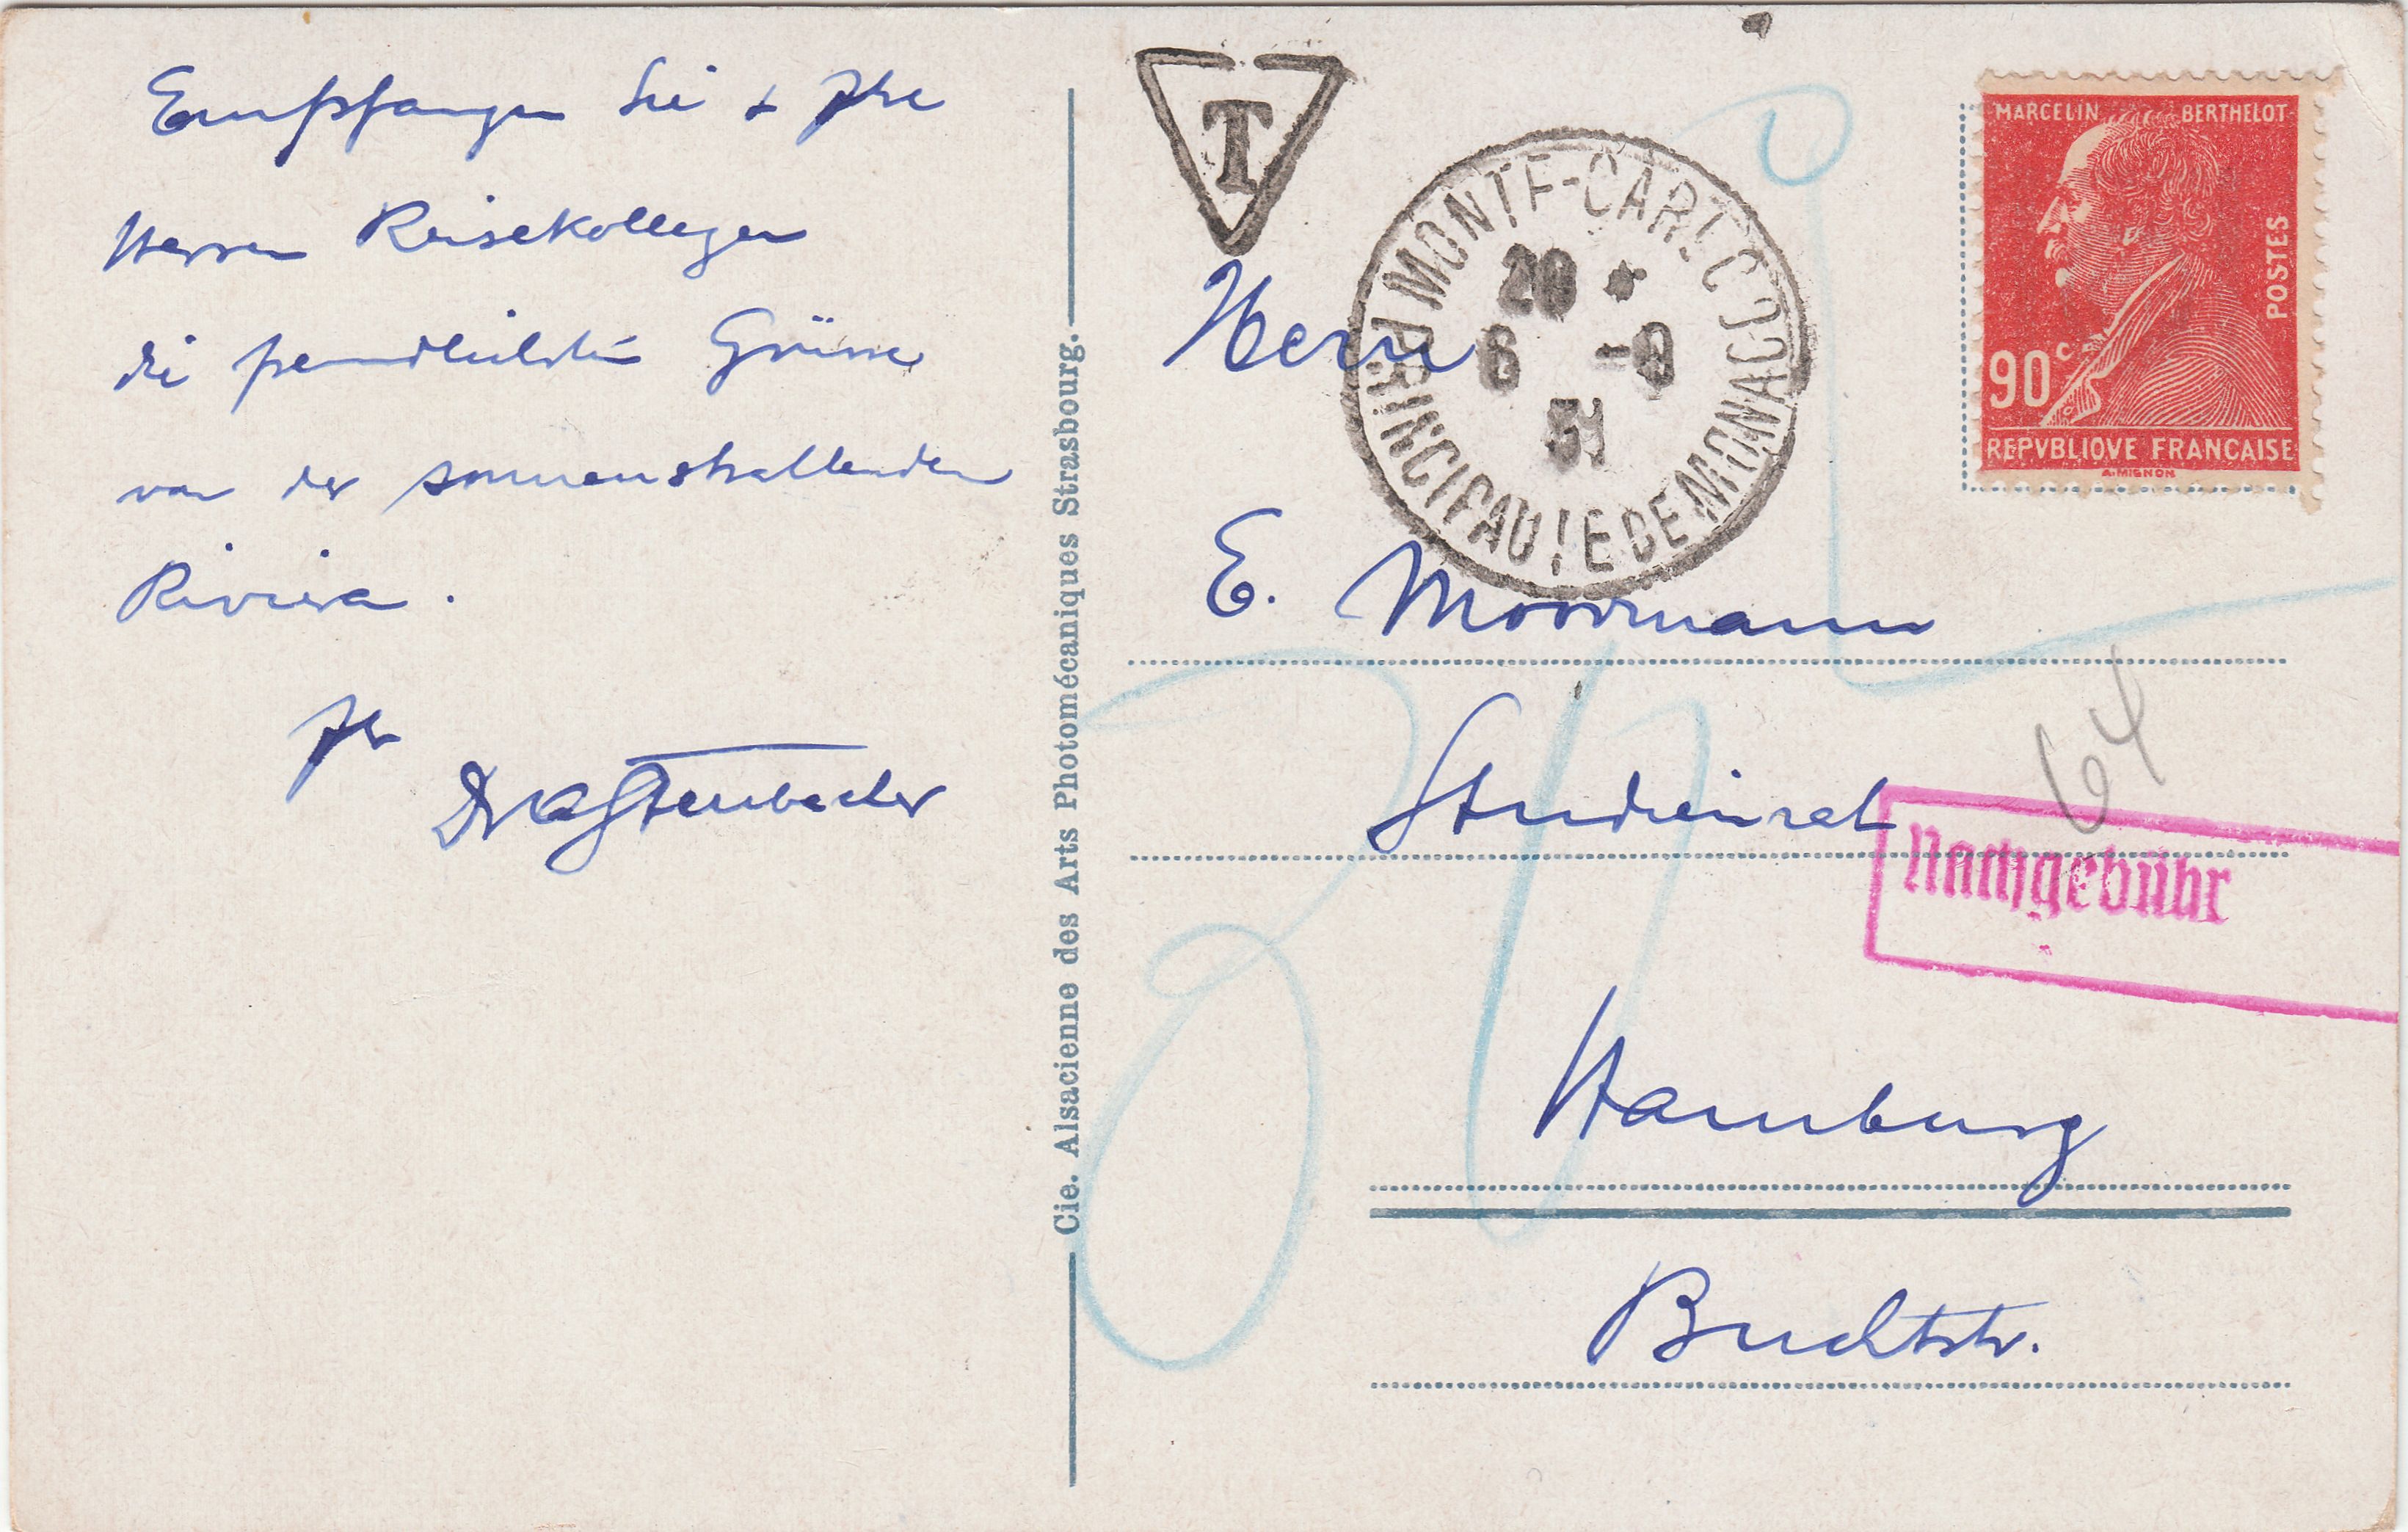 Empfangen Sie + Ihre
Herren Reisekollegen
die freundlichsten Grüsse
von der sonnenstrahlenden
Riviera.
Ihr
Dr
Cie. Alsacienne des Arts Photomécaniques Strasbourg.
T
MONTE-CARLO
PRINCIPAUTE DE MONACO
20 *
6 -9
31
MARCELIN BERTHELOT
POSTES
90c
REPVBLIQVE FRANCAISE
A. MIGNON
Herrn
E. Moormann
64
Studienrat
Nachgebühr
30
Hamburg
Buchtstr.